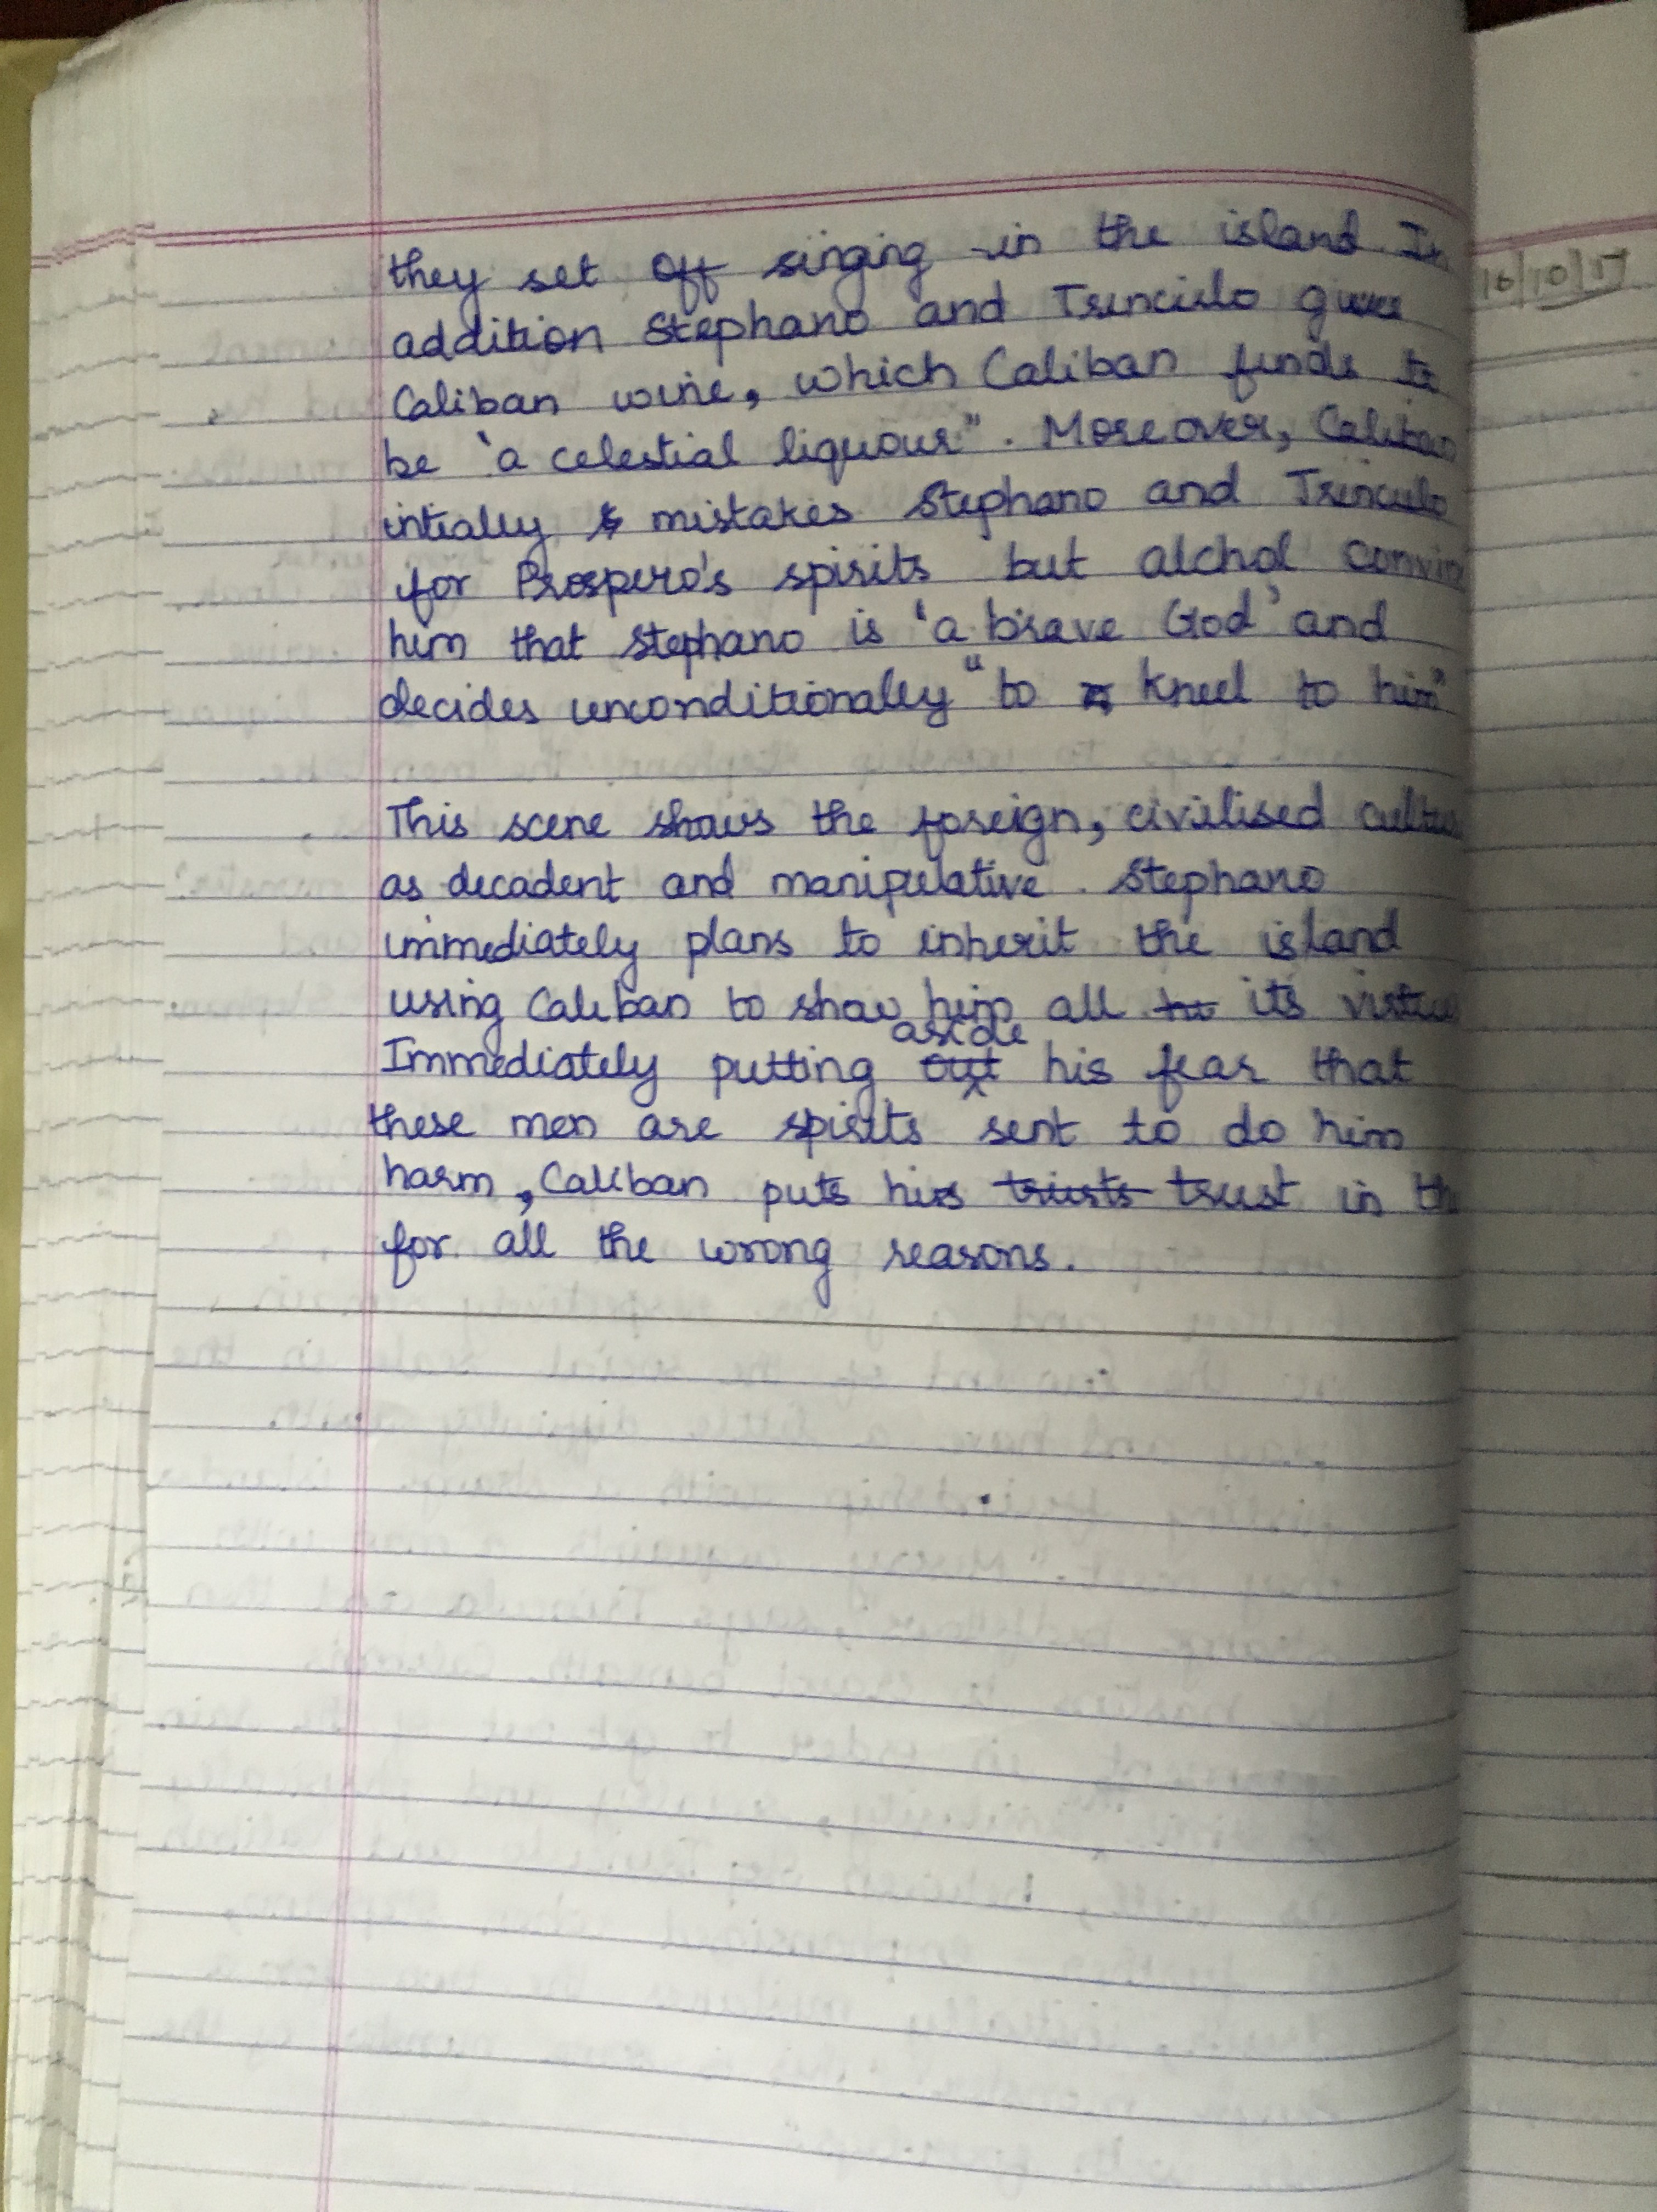 they set off singing in the island In
addition Stephano and Trinculo gives
Caliban wine, which Caliban finds to
be 'a celestial liquour". Moreover, Caliban
intially mistakes Stephano and Trinculo
for Prospero's spirits but alchol convin
him that Stephano is 'a brave God' and
decides unconditionally "to kneel to him"
This scene shows the foreign, civilised cultu
as decadent and manipulative. Stephano
immediately plans to inherit the island
using Caliban to show him all its virtue
aside
Immediately putting out his fear that
these men are spirits sent to do him
harm, Caliban puts his trusts trust in th
for all the wrong reasons.
16/10/17